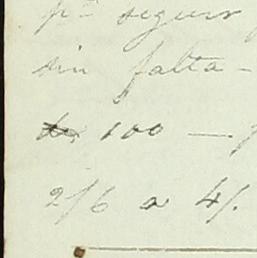 pª seguir
sin falta -
100 —
2/6 a 4/.